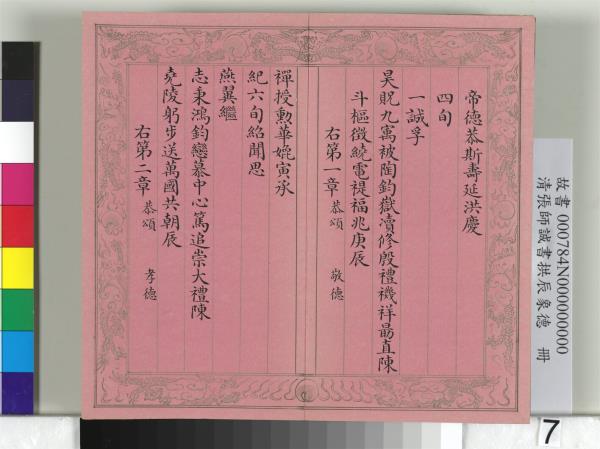 帝德恭斯壽延洪慶
四旬
一誠孚
昊貺九寓被陶鈞嶽瀆修殷禮禨祥勗直陳
斗樞徵繞電禔福兆庚辰
右第一章 恭頌 敬德
禪授勳華媲寅承
紀六旬紹聞思
燕翼繼
志秉鴻鈞戀慕中心篤追崇大禮陳
堯陵躬步送萬國共朝辰
右第二章 恭頌 孝德
故書 000784N000000000
清張師誠書拱辰象德 冊
7